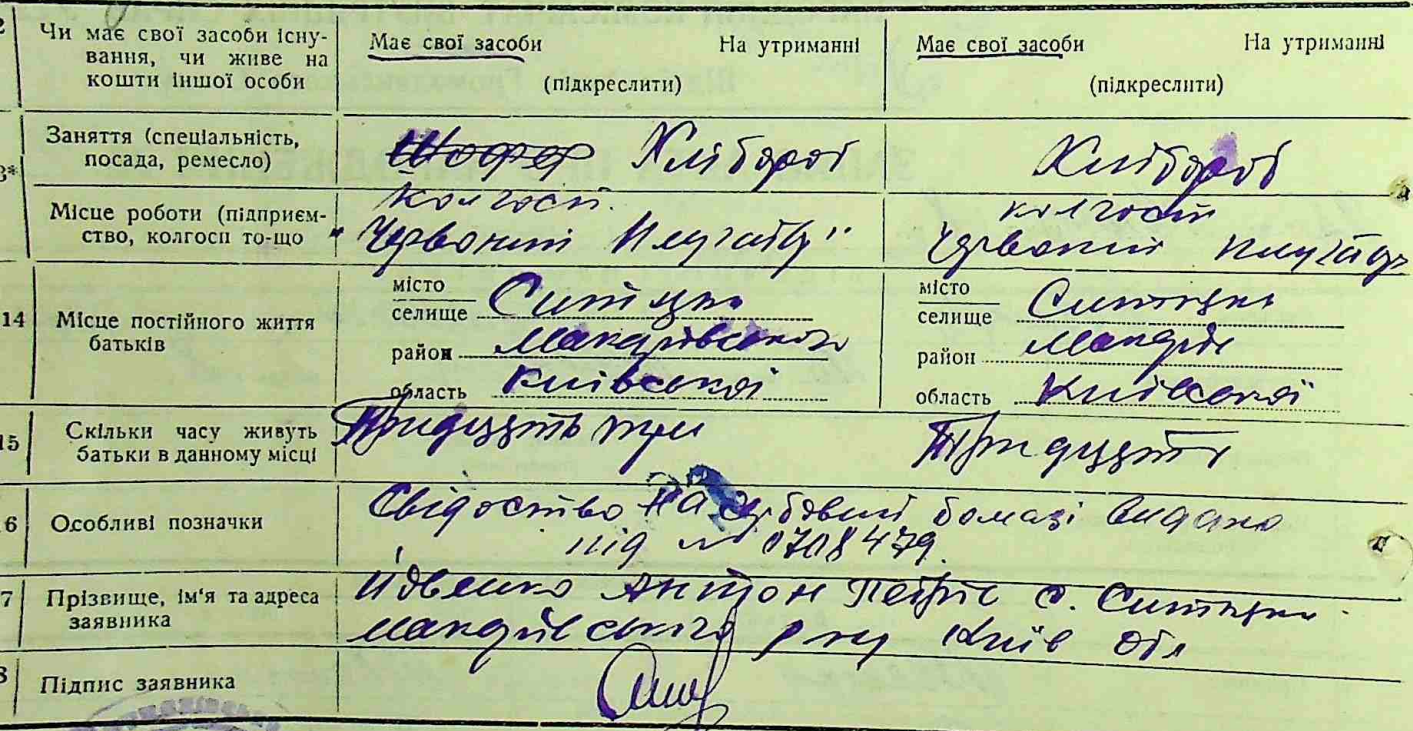 2 Чи має свої засоби існу-
вання, чи живе на
кошти іншої особи
Має свої засоби На утриманні
(підкреслити)
Має свої засоби На утриманні
(підкреслити)
3* Заняття (спеціальність,
посада, ремесло)
Хлібороб
Хлібороб
Місце роботи (підприєм-
ство, колгосп то-що
колгосп.
"Червоний Плугатар"
колгосп
Червоний Плугатар
14 Місце постійного життя
батьків
місто
селище Ситняки
район Макарівського
область Київської
місто
селище Ситняки
район Макарів
область Київської
15 Скільки часу живуть
батьки в данному місці
Тридцять три
Тридцять
6 Особливі позначки
Свідоство на гербовий бомазі видано
під № 0708479.
7 Прізвище, ім'я та адреса
заявника
Антон Петрів с. Ситняки
макарівського р-ну Київ обл
8 Підпис заявника